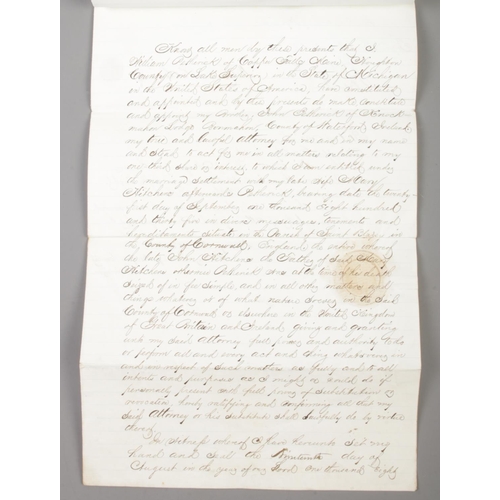 Know all men by these presents that I
William of Copper Falls Mine
County on Lake Superior in the State of Michigan
in the United States of America, have constituted
and appointed, and by these presents do make constitute
and appoint my John of
Lodge County of Waterford Ireland
my true and lawful Attorney for me and in my name
and stead to act for me in all matters relating to my
share or interest to which I am entitled under
the marriage Settlement with my late wife Mary
Kitchens afterwards bearing date the twenty
first day of September one thousand eight hundred
and thirty five on divers messuages, tenements and
hereditaments situate in the Parish of Saint in
the County of Cornwall, England the
the late John Kitchens the Father of said Mary
Kitchens was at the time of his death
seized of in fee simple, and in all other matters and
things relating us of what nature in the said
County of Cornwall or elsewhere in the United Kingdom
of Great Britain and Ireland giving and granting
unto my said Attorney full power and authority to do
or perform all and every act and thing whatsoever in
and in respect of such matters as fully and to all
intents and purposes as I might or could do if
personally present with full power of substitution &
revocation hereby ratifying and confirming all that my
said Attorney or his substitute shall lawfully do by virtue
thereof
In witness whereof I have hereunto set my
hand and seal the Nineteenth day of
August in the year of our Lord one thousand eight